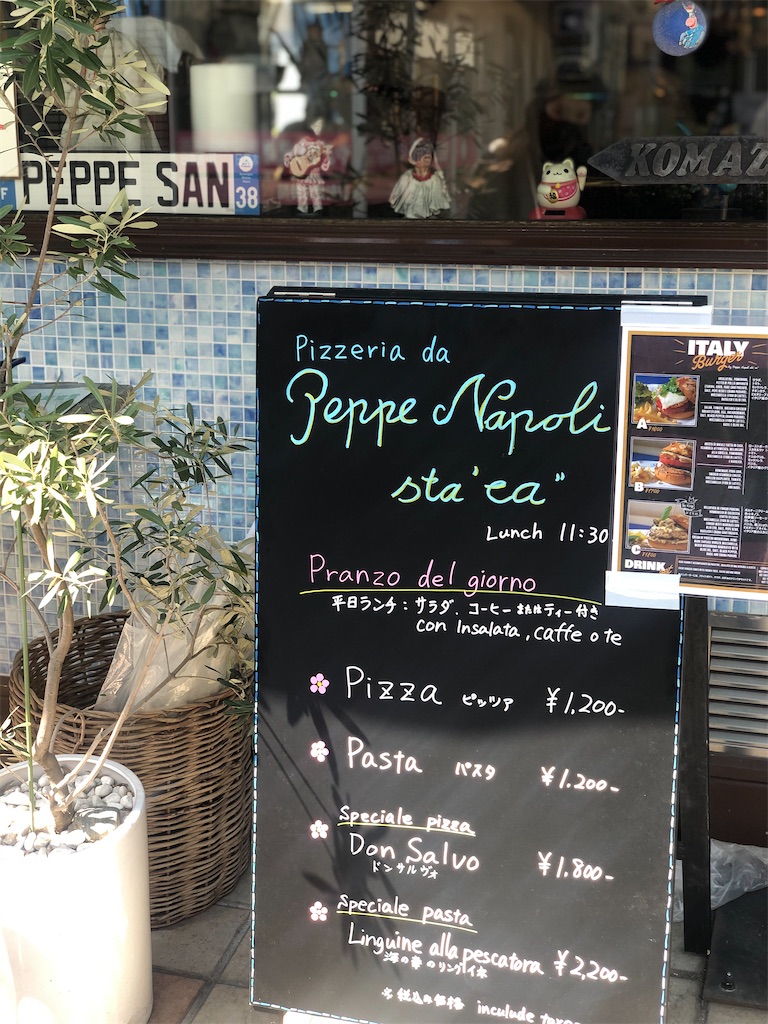 PEPPE SAN
38
KOMAZ
Pizzeria da
Peppe Napoli
sta'ca"
Lunch 11:30
Pranzo del giorno
平日ランチ：サラダ、コーヒーまたはティー付き
con Insalata, caffe o te
Pizza ピッツァ ¥1,200-
Pasta パスタ ¥1.200-
Speciale pizza
Don Salvo ¥1.800-
ドンサルヴォ
Speciale pasta
Linguine alla pescatora ¥2,200-
海の幸のリングイネ
税込の価格 inculude
ITALY
Burger
A
B
C
DRINK